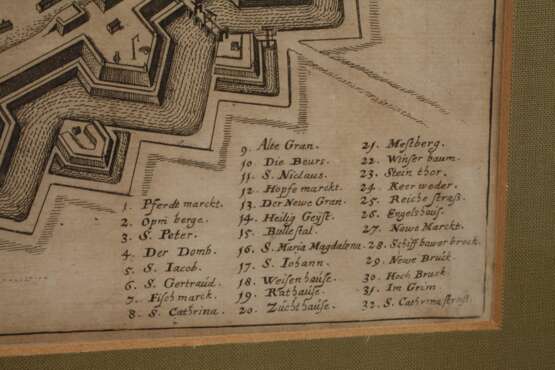 1. Pferdt marckt.
2. Opn̄ berge.
3. S. Peter.
4. Der Domb.
5. S. Iacob.
6. S. Gertraüd.
7. Fisch marck.
8. S. Cathrina.
9. Alte Gran.
10. Die Beurs.
11. S. Niclaus.
12. Hopfe marckt.
13. Der Newe Gran.
14. Heilig Geyst.
15. Bullestal.
16. S. Maria Magdalena.
17. S. Iohann.
18. Weisenhaüse.
19. Rathaüse.
20. Züchthaüse.
21. Mestberg.
22. Winser baum.
23. Stein thor.
24. Keer weder.
25. Reiche straß.
26. Engelshaus.
27. Nowe Marckt.
28. Schiff bawer brock.
29. Nowe Bruck
30. Hoch Bruck.
31. Im Grim.
32. S. Cathrina straß.